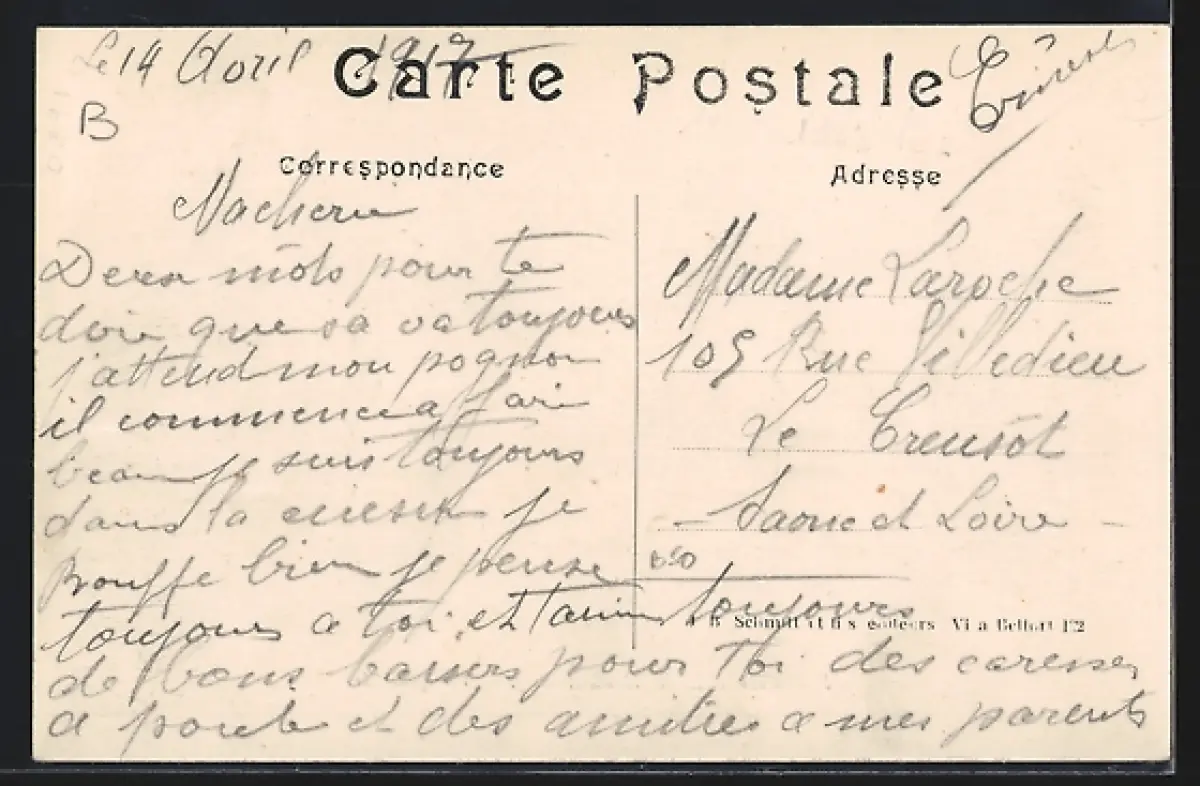 Le 14 Avril 1917
B
Carte Postale
Correspondance
Adresse
Macherie
Deux mots pour te
dire que sa va toujours
j'attend mon pognon
il commence a faire
beau je suis toujours
dans la cuisine je
Bouffe bien je pense
toujours a toi et t'aime toujours
de bons baisers pour Toi des caresses
a poule et des amitiés a mes parents
Madame Laroche
109 Rue Villedieu
Le Creusot
- Saone et Loire -
650
Schmitt et fils editeurs Via Belfort